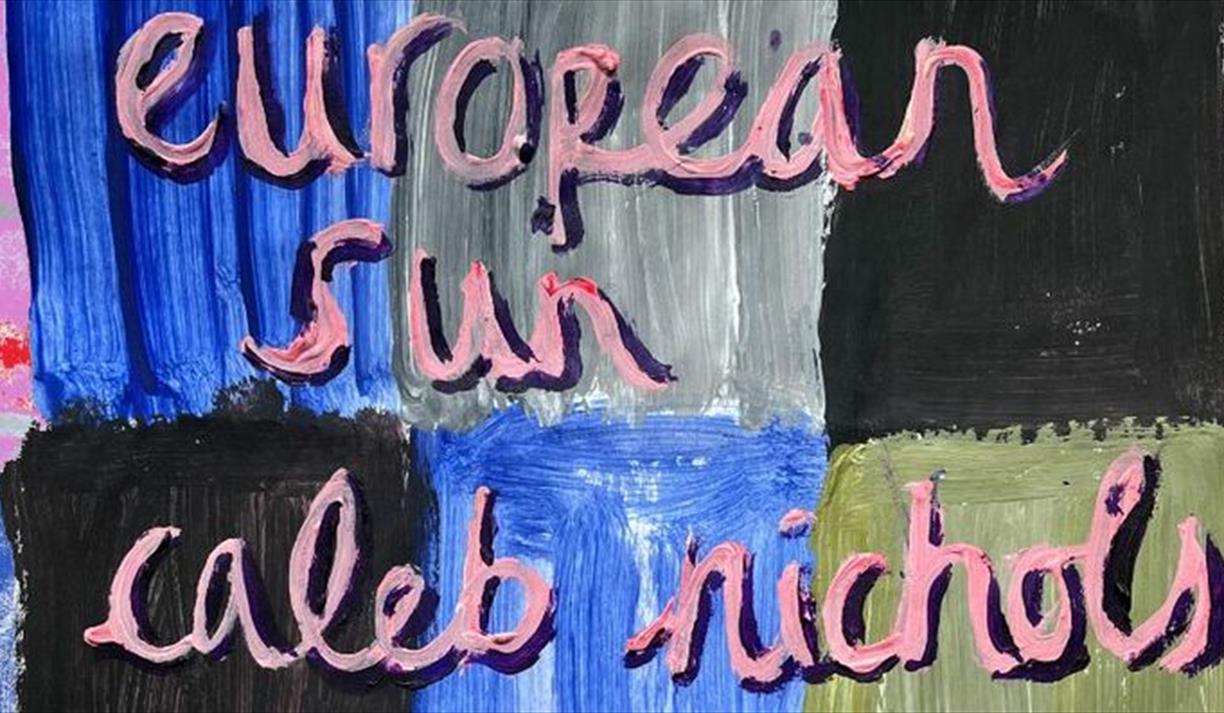 european
sun
caleb nichols